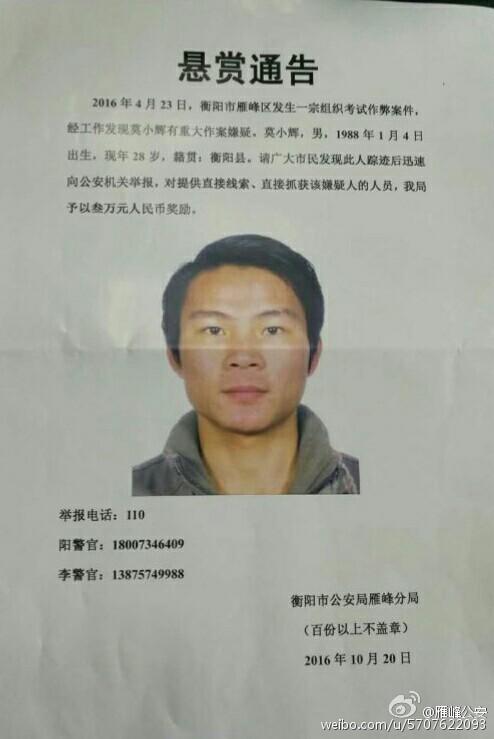 悬赏通告
2016年4月23日，衡阳市雁峰区发生一宗组织考试作弊案件，
经工作发现莫小辉有重大作案嫌疑。莫小辉，男，1988年1月4日
出生，现年28岁，籍贯：衡阳县。请广大市民发现此人踪迹后迅速
向公安机关举报，对提供直接线索、直接抓获该嫌疑人的人员，我局
予以叁万元人民币奖励。
举报电话：110
阳警官：18007346409
李警官：13875749988
衡阳市公安局雁峰分局
（百份以上不盖章）
2016年10月20日
@雁峰公安
weibo.com/u/5707622093